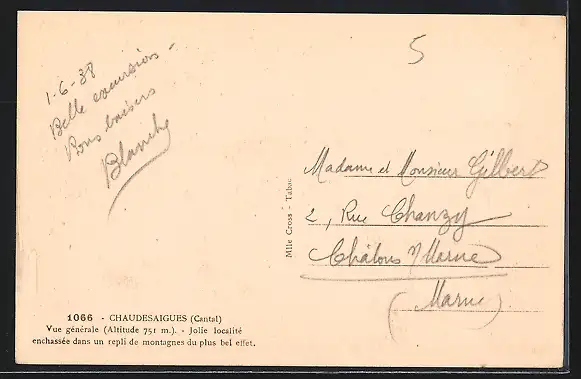 1-6-38
Belle excursion -
Bons baisers
Blanche
5
Madame et Monsieur Gilbert
2, Rue Chanzy
Châlons s/ Marne
(Marne)
Mlle Cross - Tabac
1066 - CHAUDESAIGUES (Cantal)
Vue générale (Altitude 751 m.). - Jolie localité
enchassée dans un repli de montagnes du plus bel effet.